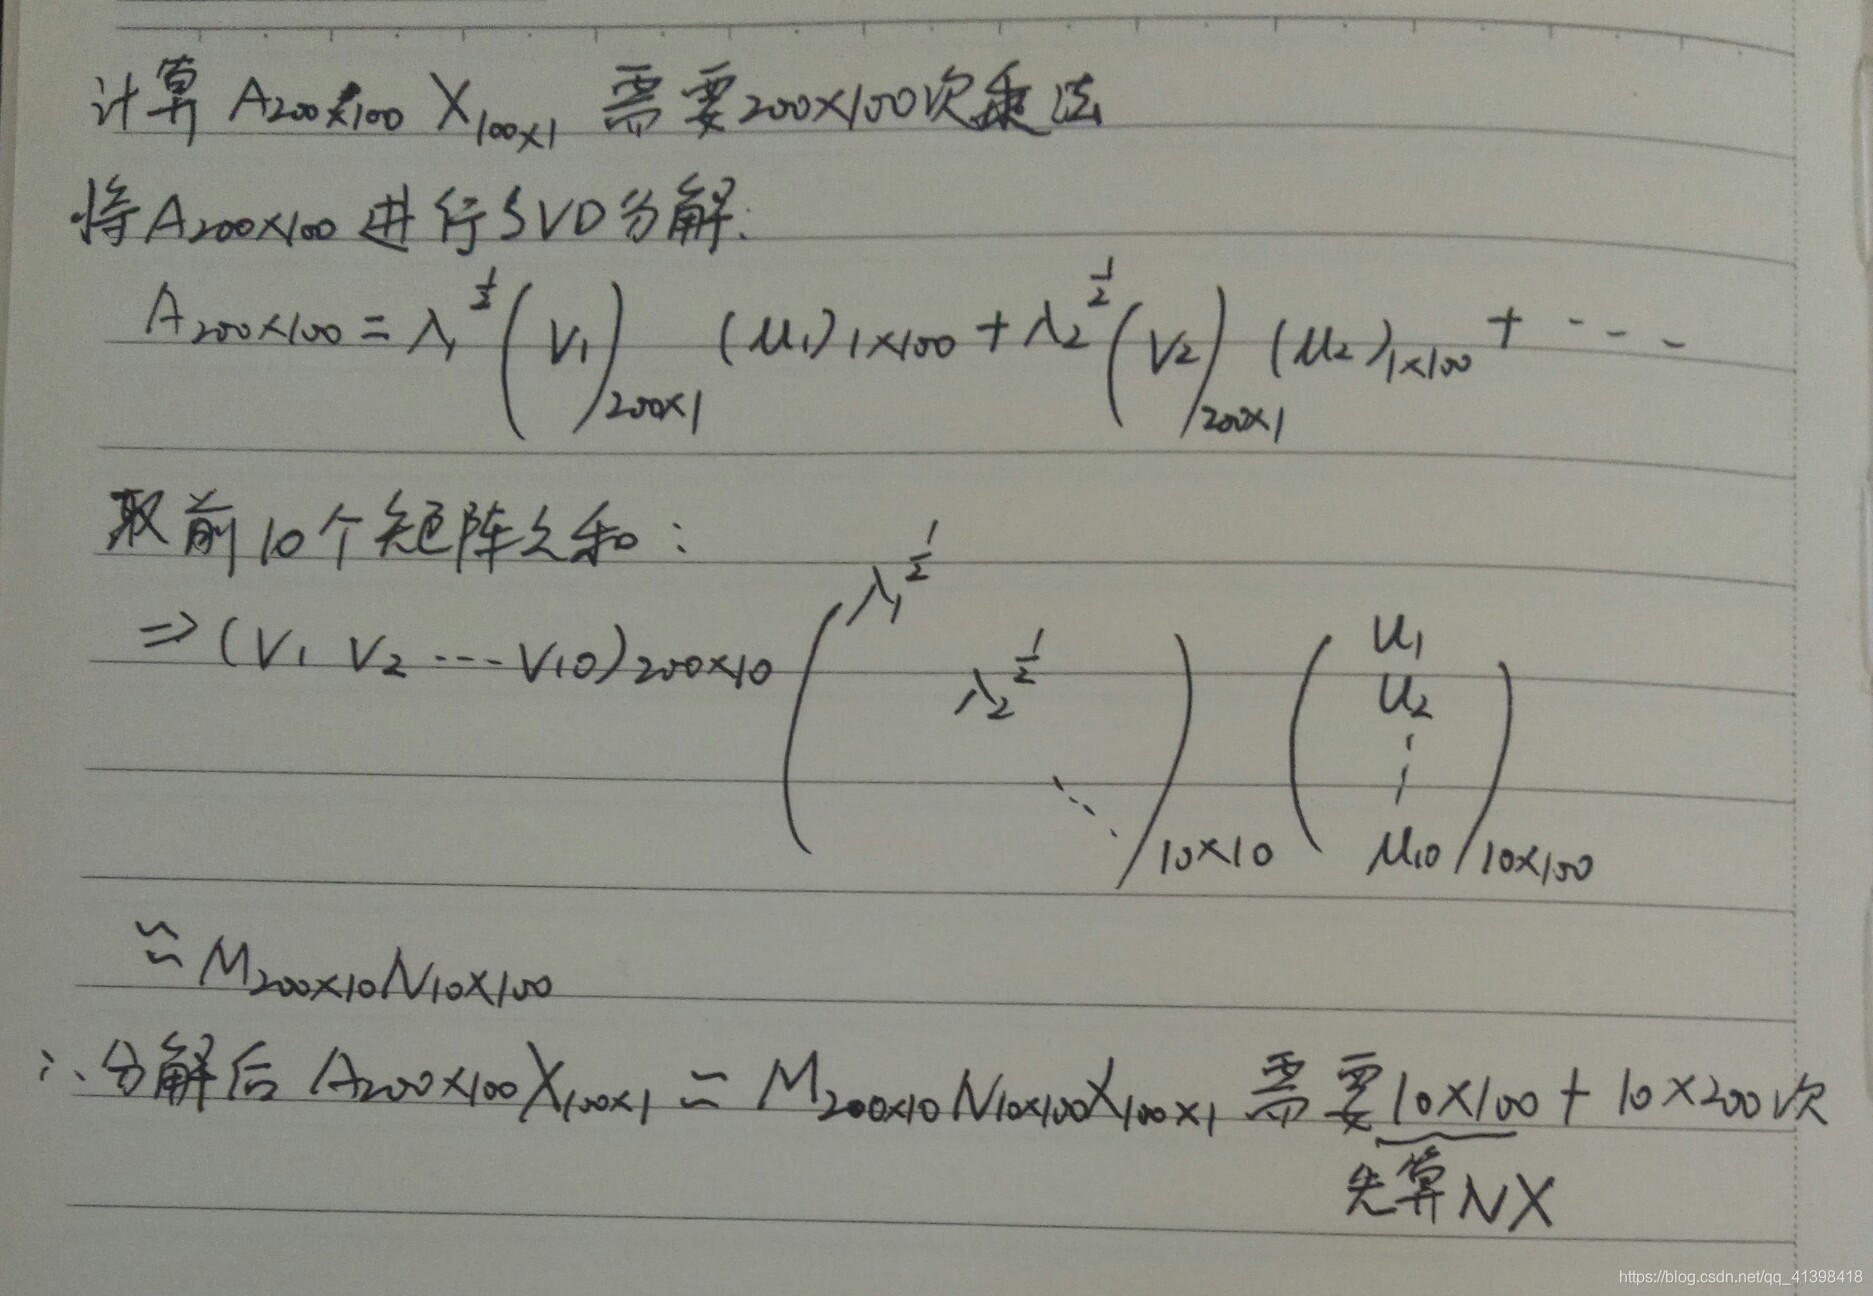 计算 A₂₀₀ₓ₁₀₀ X₁₀₀ₓ₁ 需要200×100次乘法
将A₂₀₀ₓ₁₀₀ 进行SVD分解:
A₂₀₀ₓ₁₀₀ = λ₁^½ (V₁)₂₀₀ₓ₁ (μ₁)₁ₓ₁₀₀ + λ₂^½ (V₂)₂₀₀ₓ₁ (μ₂)₁ₓ₁₀₀ + ---
取前10个矩阵之和:
⇒ (V₁ V₂ --- V₁₀)₂₀₀ₓ₁₀ (λ₁^½ λ₂^½ ⋱)₁₀ₓ₁₀ (μ₁ μ₂ ⋮ μ₁₀)₁₀ₓ₁₀₀
≈ M₂₀₀ₓ₁₀N₁₀ₓ₁₀₀
∴分解后 A₂₀₀ₓ₁₀₀X₁₀₀ₓ₁ ≈ M₂₀₀ₓ₁₀N₁₀ₓ₁₀₀X₁₀₀ₓ₁ 需要10×100 + 10×200次
先算NX
https://blog.csdn.net/qq_41398418